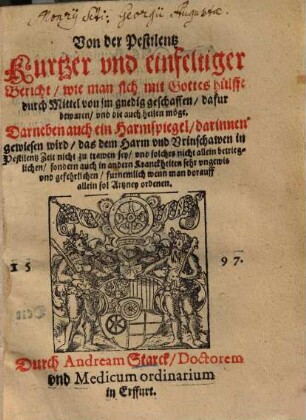 Von der Pestilentz
Kurtzer vnd einfeltiger
Bericht / wie man sich mit Gottes hülffe
durch Mittel von jm gnedig geschaffen / dafur
bewaren / vnd die auch heilen möge,
Darneben auch ein Harmspiegel / darinnen
gewiesen wird / das dem Harm vnd Vrinschawen in
Pestilentz Zeit nicht zu trawen sey / vnd solches nicht allein betrieg-
lichen / sondern auch in andern Kranckheiten sehr vngewis
vnd gefehrlichen / furnemlich wenn man darauff
allein sol Artzney ordenen.
15 97.
Durch Andream Starck / Doctorem
vnd Medicum ordinarium
in Erffurt.